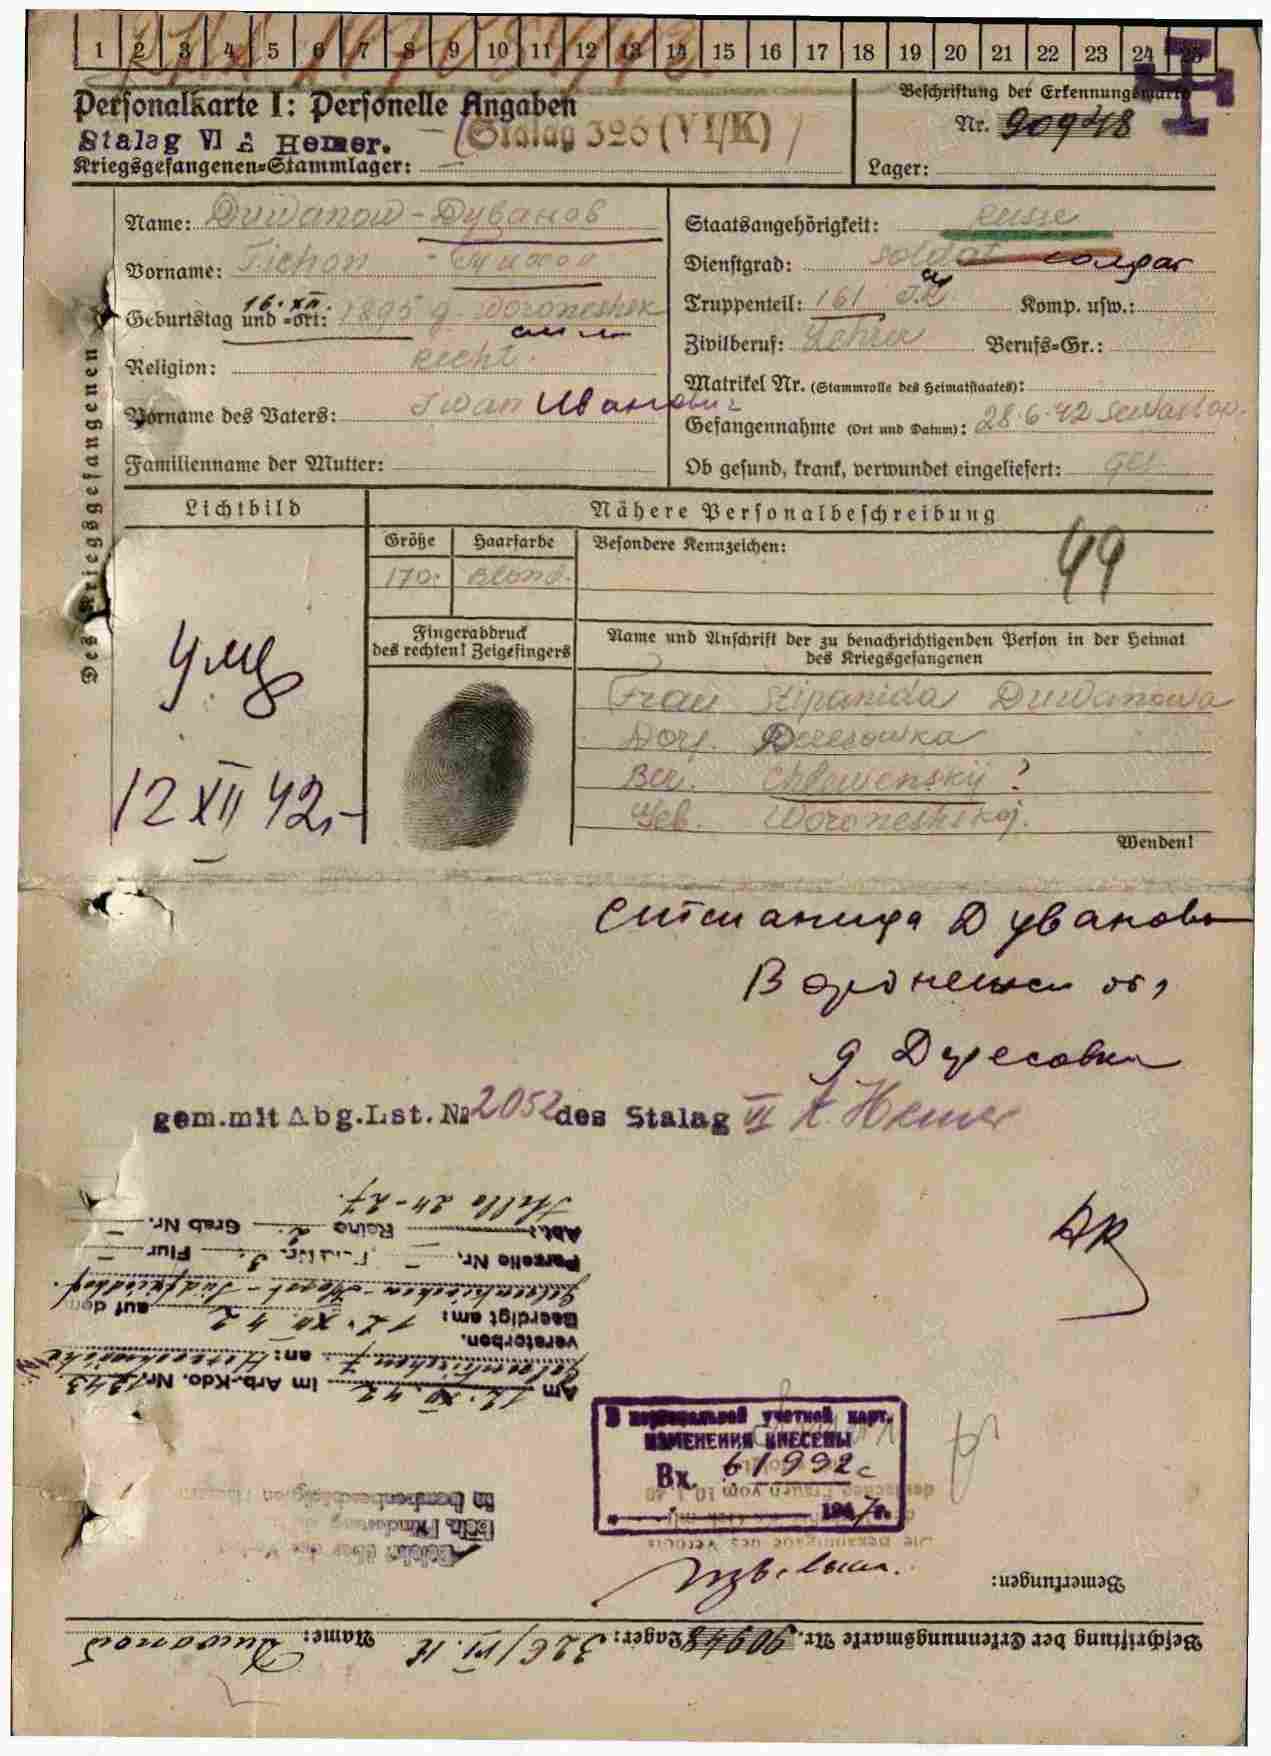 1 2 3 4 5 6 7 8 9 10 11 12 13 14 15 16 17 18 19 20 21 22 23 24 25
Personalkarte I: Personelle Angaben
Stalag VI A Hemer. (Stalag 326 (VI/K)
Kriegsgefangenen-Stammlager:
Beschriftung der Erkennungsmarke
Nr. 90948
Lager:
Des Kriegsgefangenen
Name: Duwanow - Дуванов
Vorname: Tichon - Тихон
Geburtstag und -ort: 16. XII. 1895 g. Woroneshsk
Religion:
Vorname des Vaters: Iwan Иванович
Familienname der Mutter:
Staatsangehörigkeit: Russe
Dienstgrad: Soldat солдат
Truppenteil: 161 Komp. usw.:
Zivilberuf: Lehrer Berufs-Gr.:
Matrikel Nr. (Stammrolle des Heimatstaates):
Gefangennahme (Ort und Datum): 28.6.42 Sewastop.
Ob gesund, krank, verwundet eingeliefert: ges.
Lichtbild
Nähere Personalbeschreibung
Größe Haarfarbe
170. Blond.
Besondere Kennzeichen:
Fingerabdruck
des rechten! Zeigefingers
Name und Anschrift der zu benachrichtigenden Person in der Heimat
des Kriegsgefangenen
Frau Stipanida Duwanowa
Dorf. Deresowka
Ber.
Geb. Woroneshskoj.
Wenden!
Умер
12 XII 42.
Дуванова
Воронежск об,
д Дересовка
gem.mit Abg.Lst.№ 2052 des Stalag VI A. Hemer
Am 12. XII. 42 im Arb.-Kdo. Nr. 1243
Gelsenkirchen an: Herzschwäche
verstorben.
Beerdigt am: 17. XII. 42 auf dem
Gelsenkirchen-Horst-Südfriedhof.
Parzelle Nr. Flur
Abt.: Reihe Grab Nr.
Stelle 24-27.
В персональной учетной карт.
ИЗМЕНЕНИЯ ВНЕСЕНЫ
Вх. 61992с
1947 г.
Bemerkungen:
Beschriftung der Erkennungsmarke Nr. 90948 Lager: 326/VI K Name: Duwanow